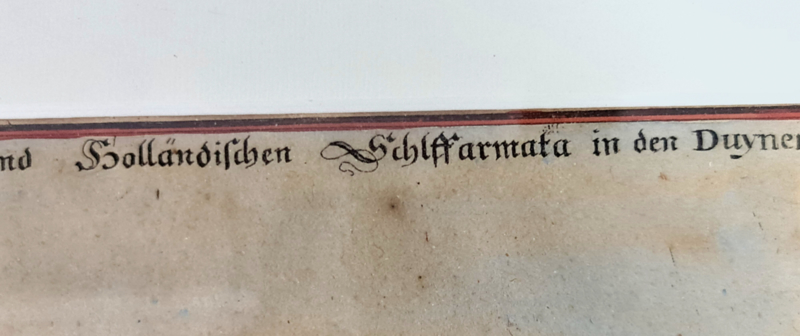 nd Holländischen Schlffarmata in den Duynen